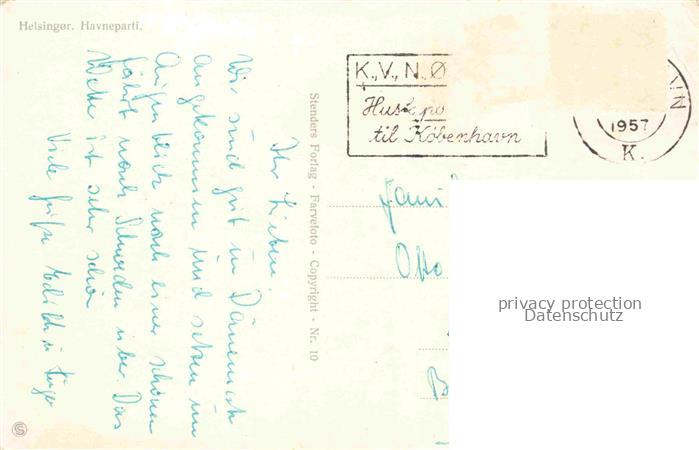 Helsingør. Havneparti.
K., V., N., Ø
Husk po
til København
1957
K.
Stenders Forlag - Farvefoto - Copyright - Nr. 10
Ihr Lieben.
Wir sind gut in Dänemark
angekommen und setzen im
Augenblick nach einer schönen
Fahrt nach Schweden über. Das
Wetter ist sehr schön
Viele Grüße Edith u.
Fami
Otto
B
privacy protection
Datenschutz